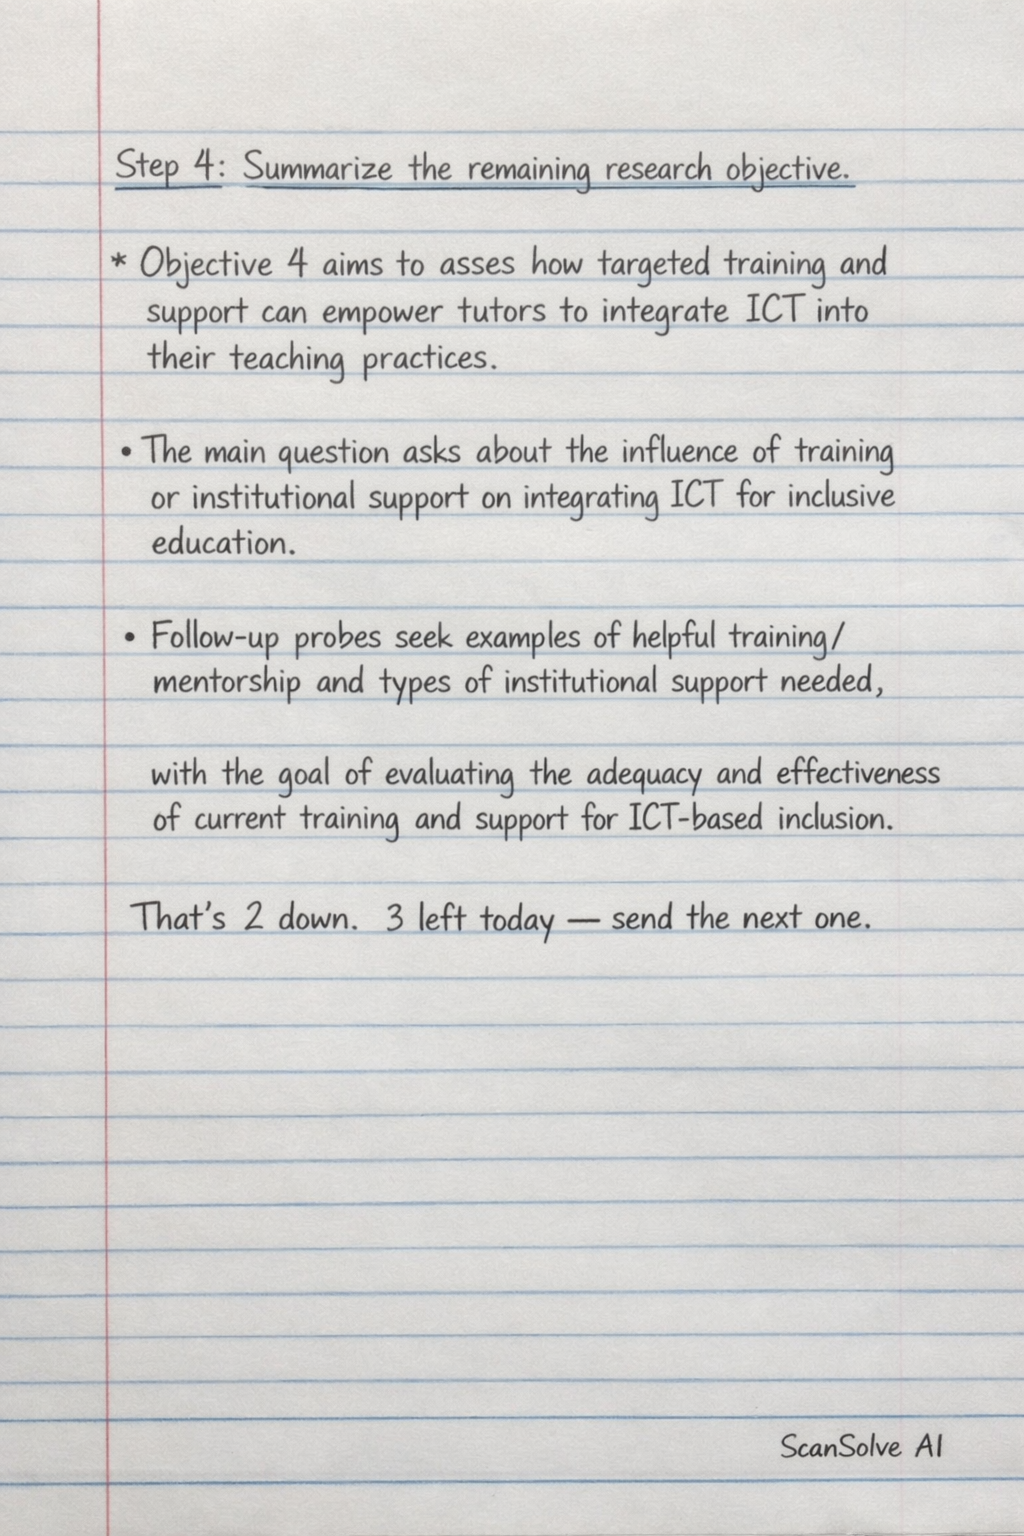 Step 4: Summarize the remaining research objective.
* Objective 4 aims to asses how targeted training and
support can empower tutors to integrate ICT into
their teaching practices.
• The main question asks about the influence of training
or institutional support on integrating ICT for inclusive
education.
• Follow-up probes seek examples of helpful training/
mentorship and types of institutional support needed,
with the goal of evaluating the adequacy and effectiveness
of current training and support for ICT-based inclusion.
That's 2 down. 3 left today — send the next one.
ScanSolve AI